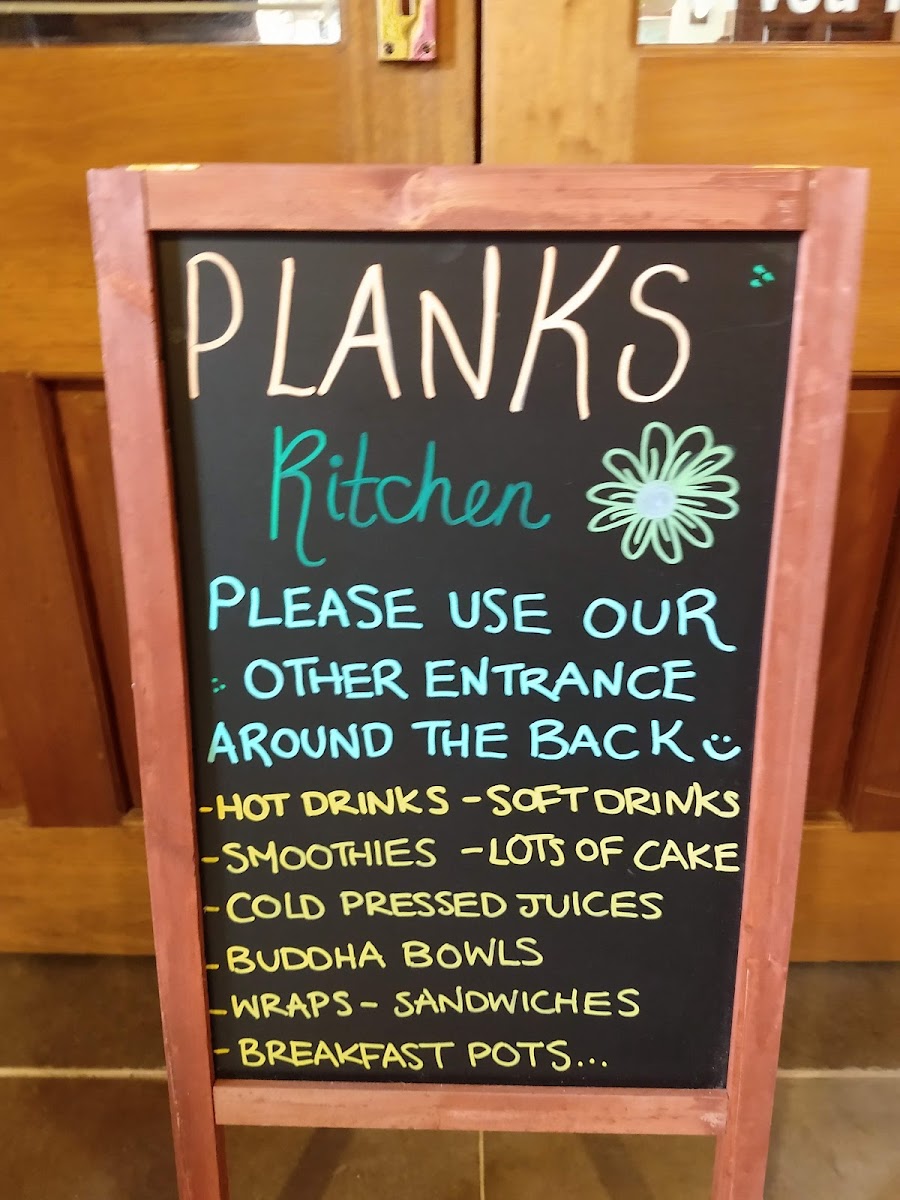 PLANKS
Kitchen
PLEASE USE OUR
OTHER ENTRANCE
AROUND THE BACK :)
-HOT DRINKS -SOFT DRINKS
-SMOOTHIES -LOTS OF CAKE
-COLD PRESSED JUICES
-BUDDHA BOWLS
-WRAPS- SANDWICHES
-BREAKFAST POTS...